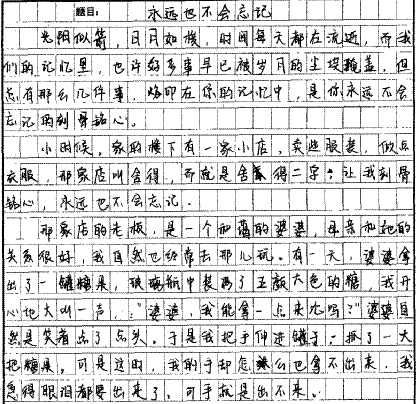 题目：永远也不会忘记
光阴似箭，日月如梭，时间每天都在流逝，而我
们的记忆里，也许好多事早已被岁月的尘埃掩盖，但
总有那么几件事，烙印在你的记忆中，是你永远不会
忘记的刻骨铭心。
小时候，家的楼下有一家小店，卖些服装，做点
衣服，那家店叫舍得，而就是舍得二字，让我刻骨
铭心，永远也不会忘记。
那家店的老板，是一个和蔼的婆婆，母亲和她的
关系很好，我自然也经常去那儿玩。有一天，婆婆拿
出了一罐糖果，玻璃瓶中装满了五颜六色的糖，我开
心地大叫一声，“婆婆，我能拿一点来吃吗？”婆婆自
然是笑着点了点头。于是我把手伸进罐子，抓了一大
把糖果。可是这时，我的手却怎么也拿不出来，我
急得眼泪都要出来了，可手就是出不来。